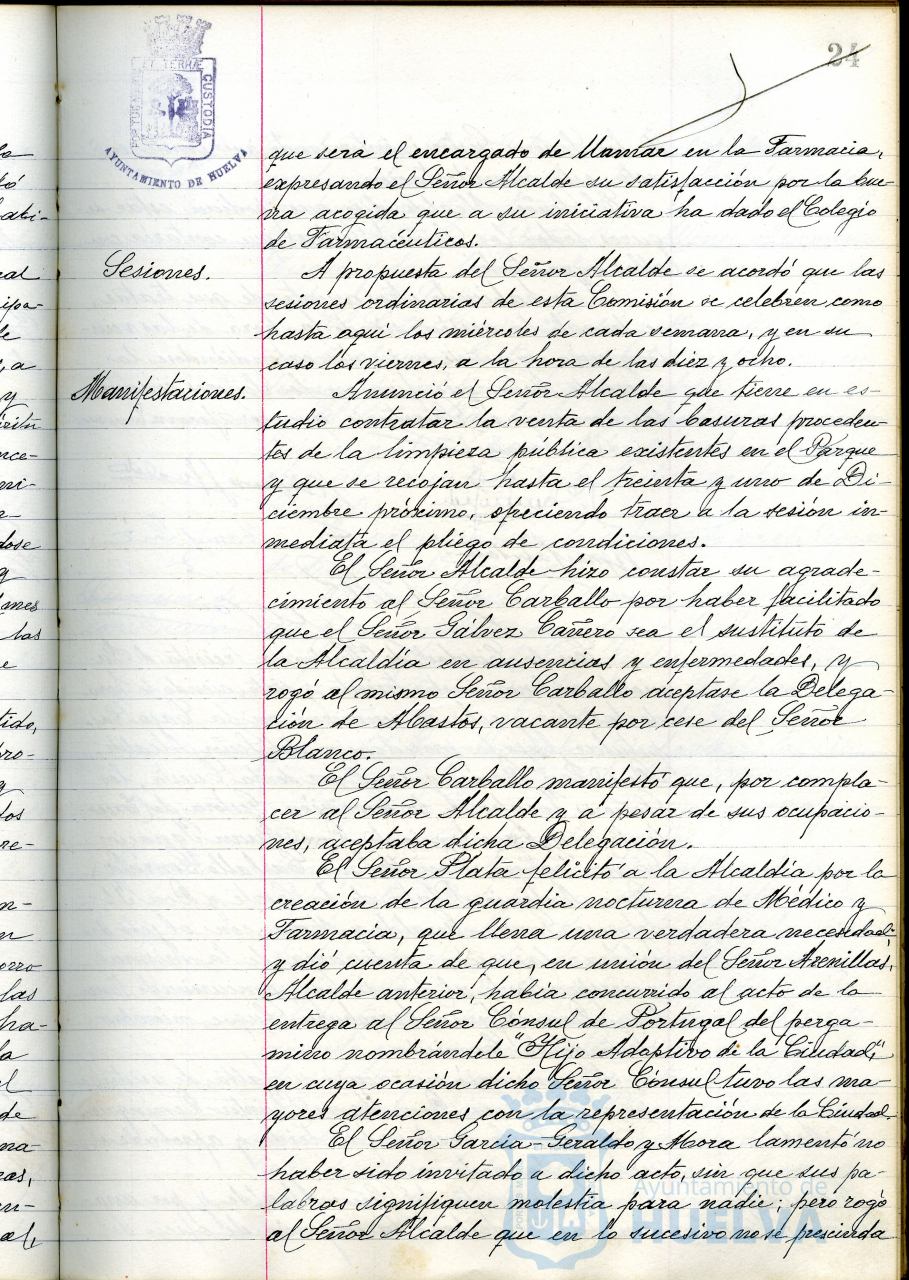 24
PORTUS MARIS ET TERRÆ CUSTODIA
AYUNTAMIENTO DE HUELVA
que será el encargado de llamar en la Farmacia,
expresando el Señor Alcalde su satisfacción por la bue-
na acogida que a su iniciativa ha dado el Colegio
de Farmacéuticos.
Sesiones.
A propuesta del Señor Alcalde se acordó que las
sesiones ordinarias de esta Comisión se celebren como
hasta aquí los miércoles de cada semana, y en su
caso los viernes, a la hora de las diez y ocho.
Manifestaciones.
Anunció el Señor Alcalde que tiene en es-
tudio contratar la venta de las basuras proceden-
tes de la limpieza pública existentes en el Parque
y que se recojan hasta el treinta y uno de Di-
ciembre próximo, ofreciendo traer a la sesión in-
mediata el pliego de condiciones.
El Señor Alcalde hizo constar su agrade-
cimiento al Señor Carballo por haber facilitado
que el Señor Gálvez Cañero sea el sustituto de
la Alcaldía en ausencias y enfermedades, y
rogó al mismo Señor Carballo aceptase la Delega-
ción de Abastos, vacante por cese del Señor
Blanco.
El Señor Carballo manifestó que, por compla-
cer al Señor Alcalde y a pesar de sus ocupacio-
nes, aceptaba dicha Delegación.
El Señor Plata felicitó a la Alcaldía por la
creación de la guardia nocturna de Médico y
Farmacia, que llena una verdadera necesidad,
y dió cuenta de que, en unión del Señor Arenillas,
Alcalde anterior, había concurrido al acto de la
entrega al Señor Cónsul de Portugal del perga-
mino nombrándole "Hijo Adoptivo de la Ciudad,"
en cuya ocasión dicho Señor Cónsul tuvo las ma-
yores atenciones con la representación de la Ciudad.
El Señor García-Geraldo y Mora lamentó no
haber sido invitado a dicho acto, sin que sus pa-
labras signifiquen molestia para nadie; pero rogó
al Señor Alcalde que en lo sucesivo no se prescinda
Ayuntamiento de
HUELVA